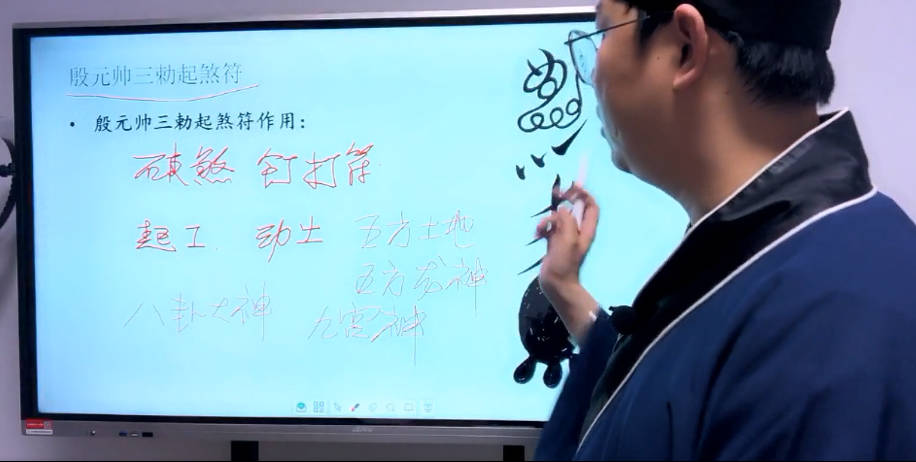 殷元帅三勅起煞符
• 殷元帅三勅起煞符作用：
破煞 钉打符
起工. 动土 五方土地
五方龙神
八卦大神 九宫神